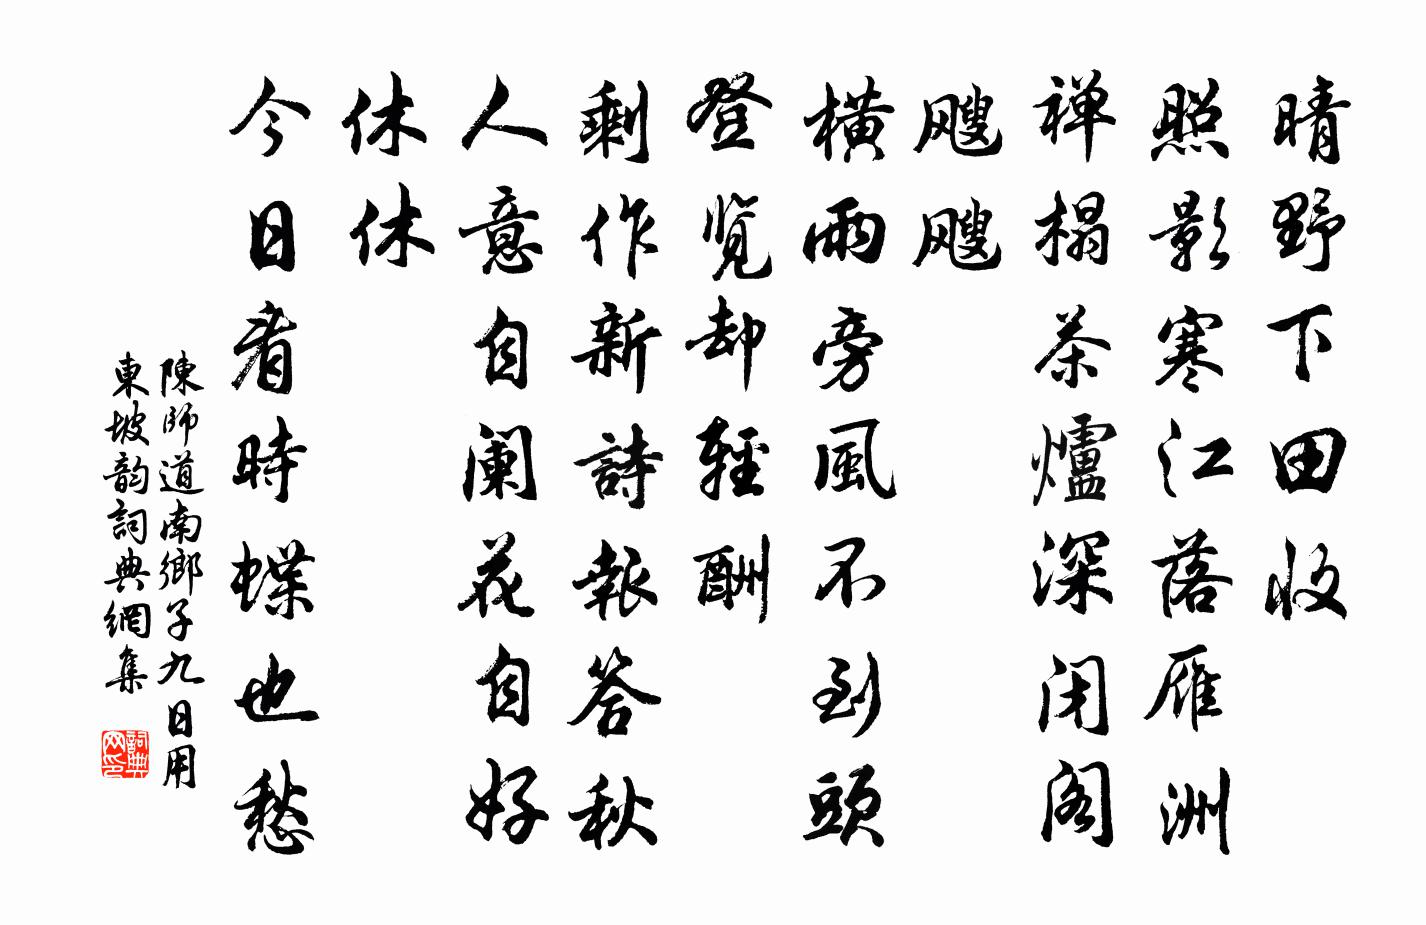 晴野下田收
照影寒江落雁洲
禅榻茶爐深闭阁
飕飕
横雨旁風不到頭
登览却輕酬
剩作新詩報答秋
人意自阑花自好
休休
今日看時蝶也愁
陳師道南鄉子九日用
東坡韵詞典網集
詞典
网印